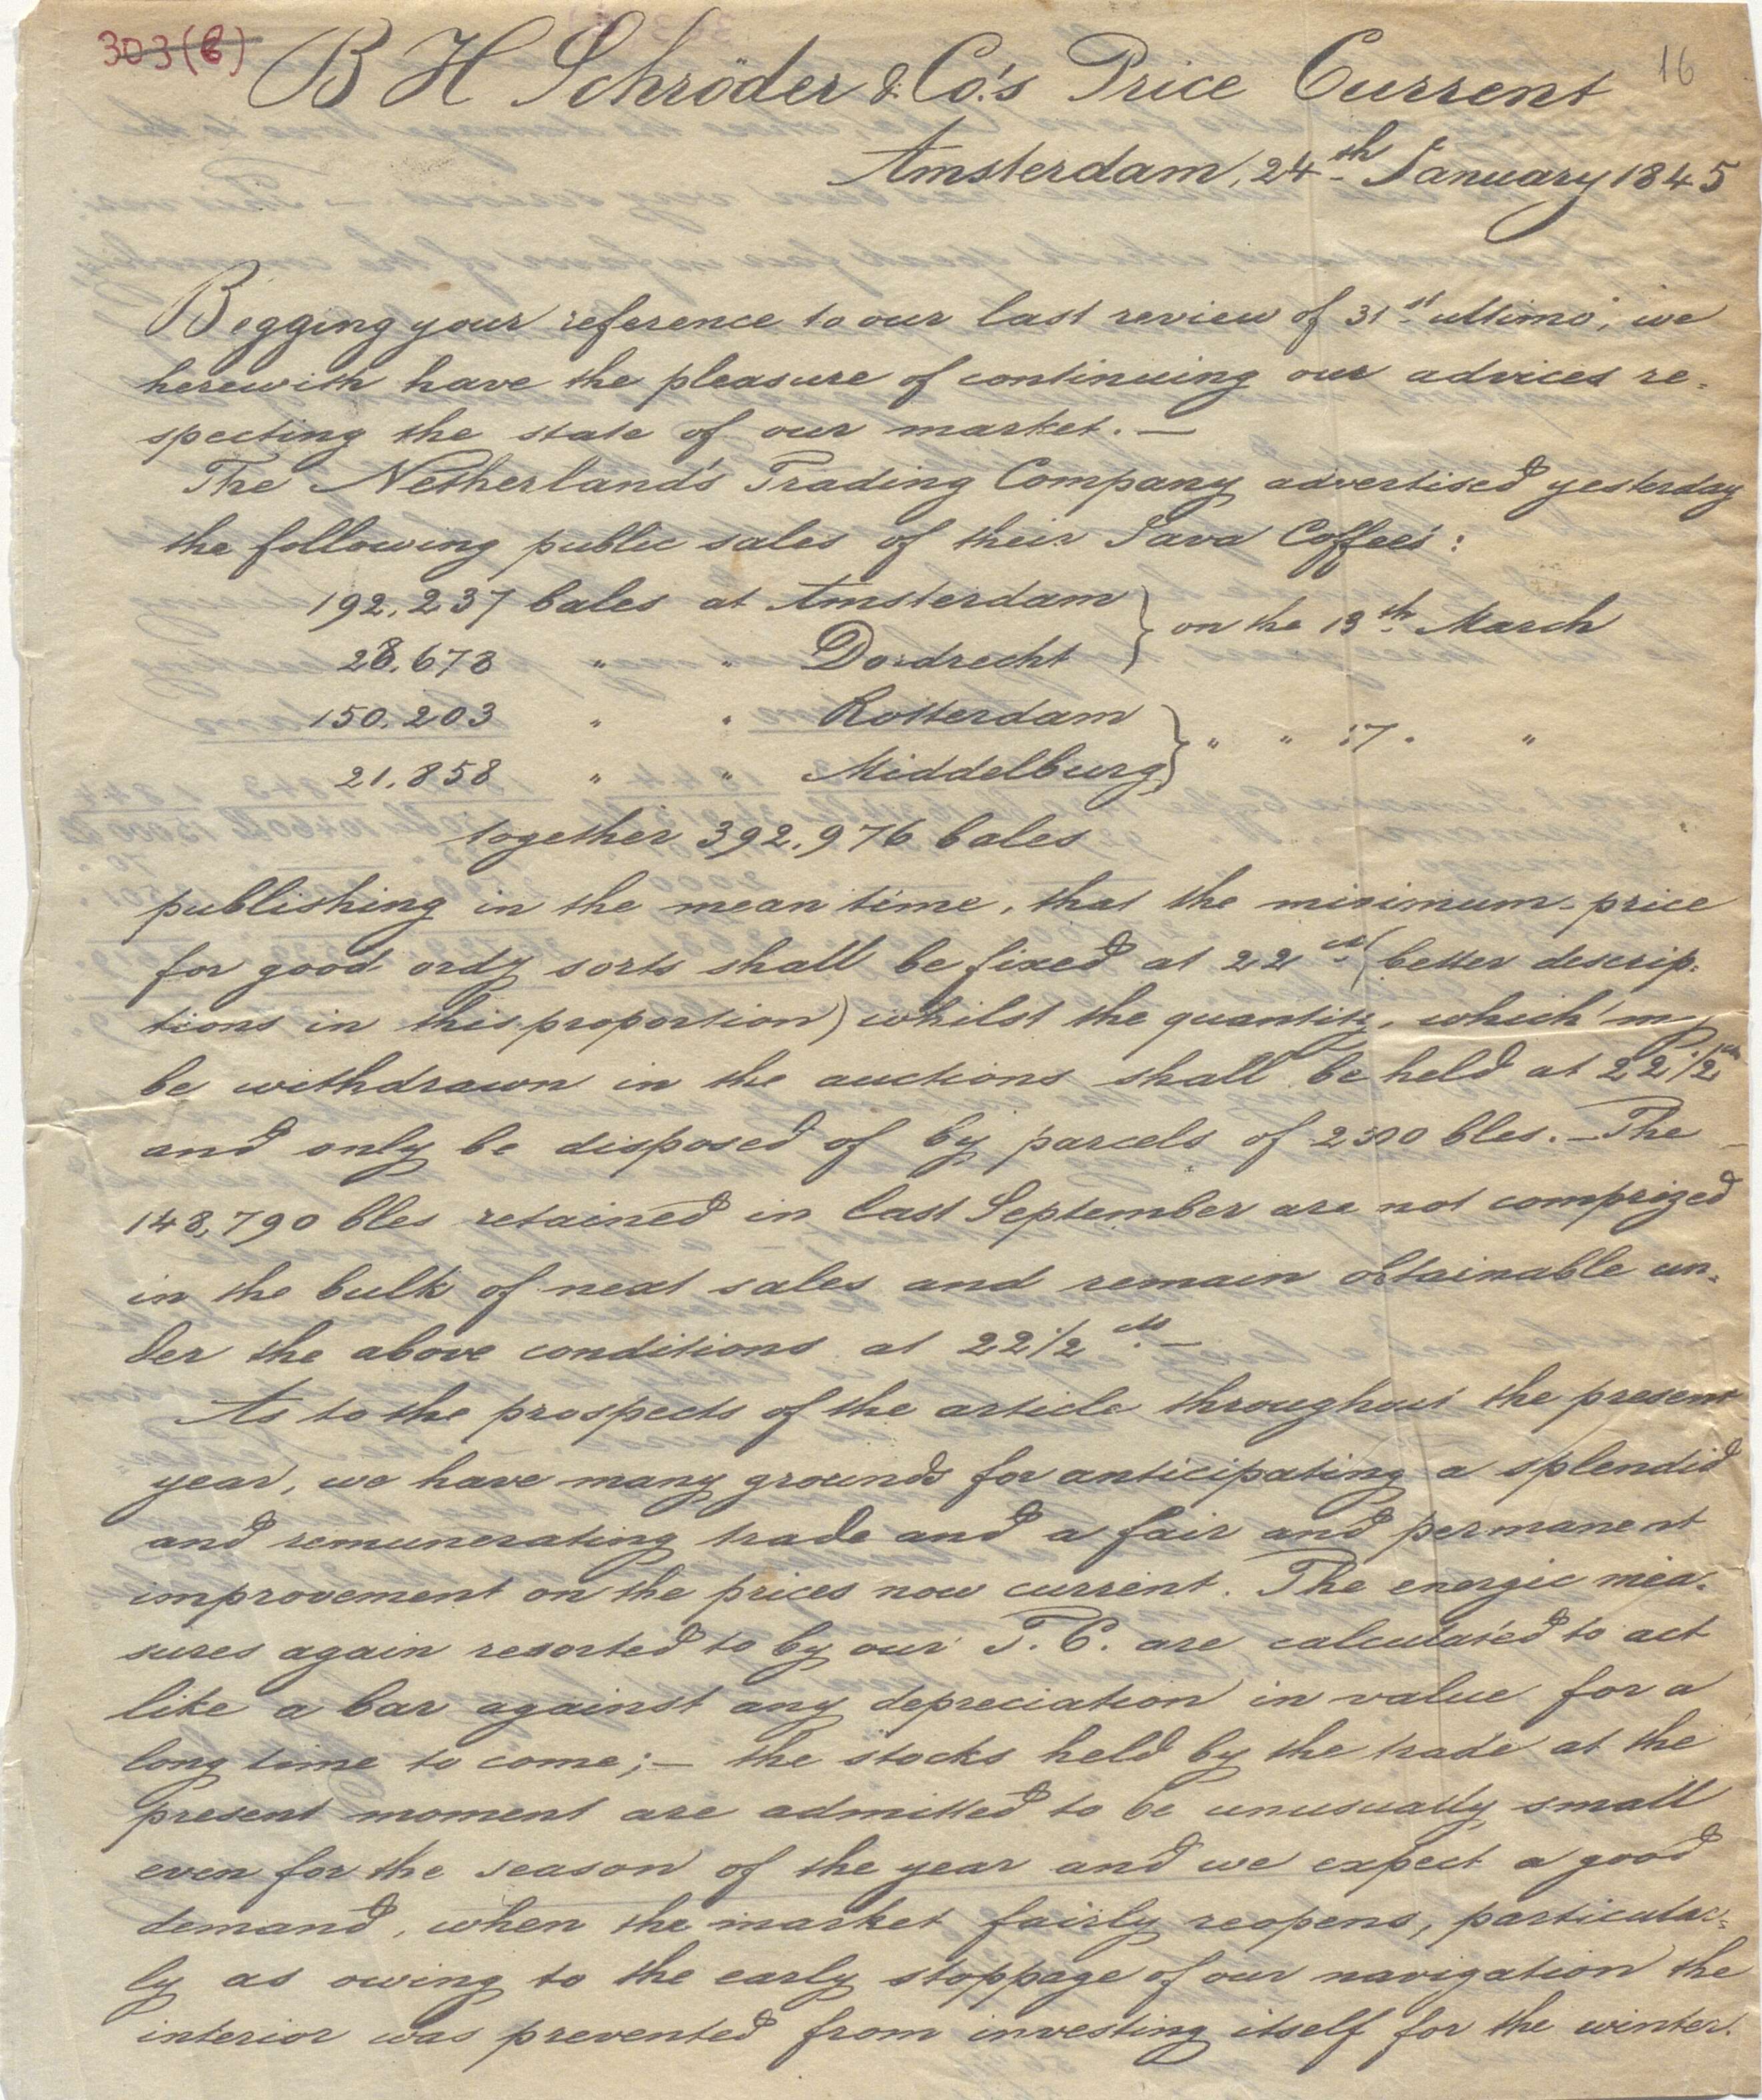 303(6) B H Schröder & Co's Price Current 16
Amsterdam, 24th January 1845
Begging your reference to our last review of 31st ultimo, we
herewith have the pleasure of continuing our advices re=
specting the state of our market. —
The Netherland's Trading Company advertised yesterday
the following public sales of their Java Coffees:
192,237 bales at Amsterdam } on the 13th March
28,678 " " Dordrecht
150,203 " " Rotterdam } " " 17 " "
21,858 " " Middelburg
together 392,976 bales
publishing in the mean time, that the minimum-price
for good ordy sorts shall be fixed at 22 cts (better descrip=
tions in this proportion) whilst the quantity, which may
be withdrawn in the auctions shall be held at 22 1/2 cts
and only be disposed of by parcels of bles. — The
148,790 bles retained in last September are not comprized
in the bulk of next sales and remain obtainable un=
der the above conditions at 22 1/2 cts. —
As to the prospects of the article throughout the present
year, we have many grounds for anticipating a splendid
and remunerating trade and a fair and permanent
improvement on the prices now current. The energic mea=
sures again resorted to by our T. C. are calculated to act
like a bar against any depreciation in value for a
long time to come; — the stocks held by the trade at the
present moment are admitted to be unusually small
even for the season of the year and we expect a good
demand, when the market fairly reopens, particular=
ly as owing to the early stoppage of our navigation the
interior was prevented from investing itself for the winter.